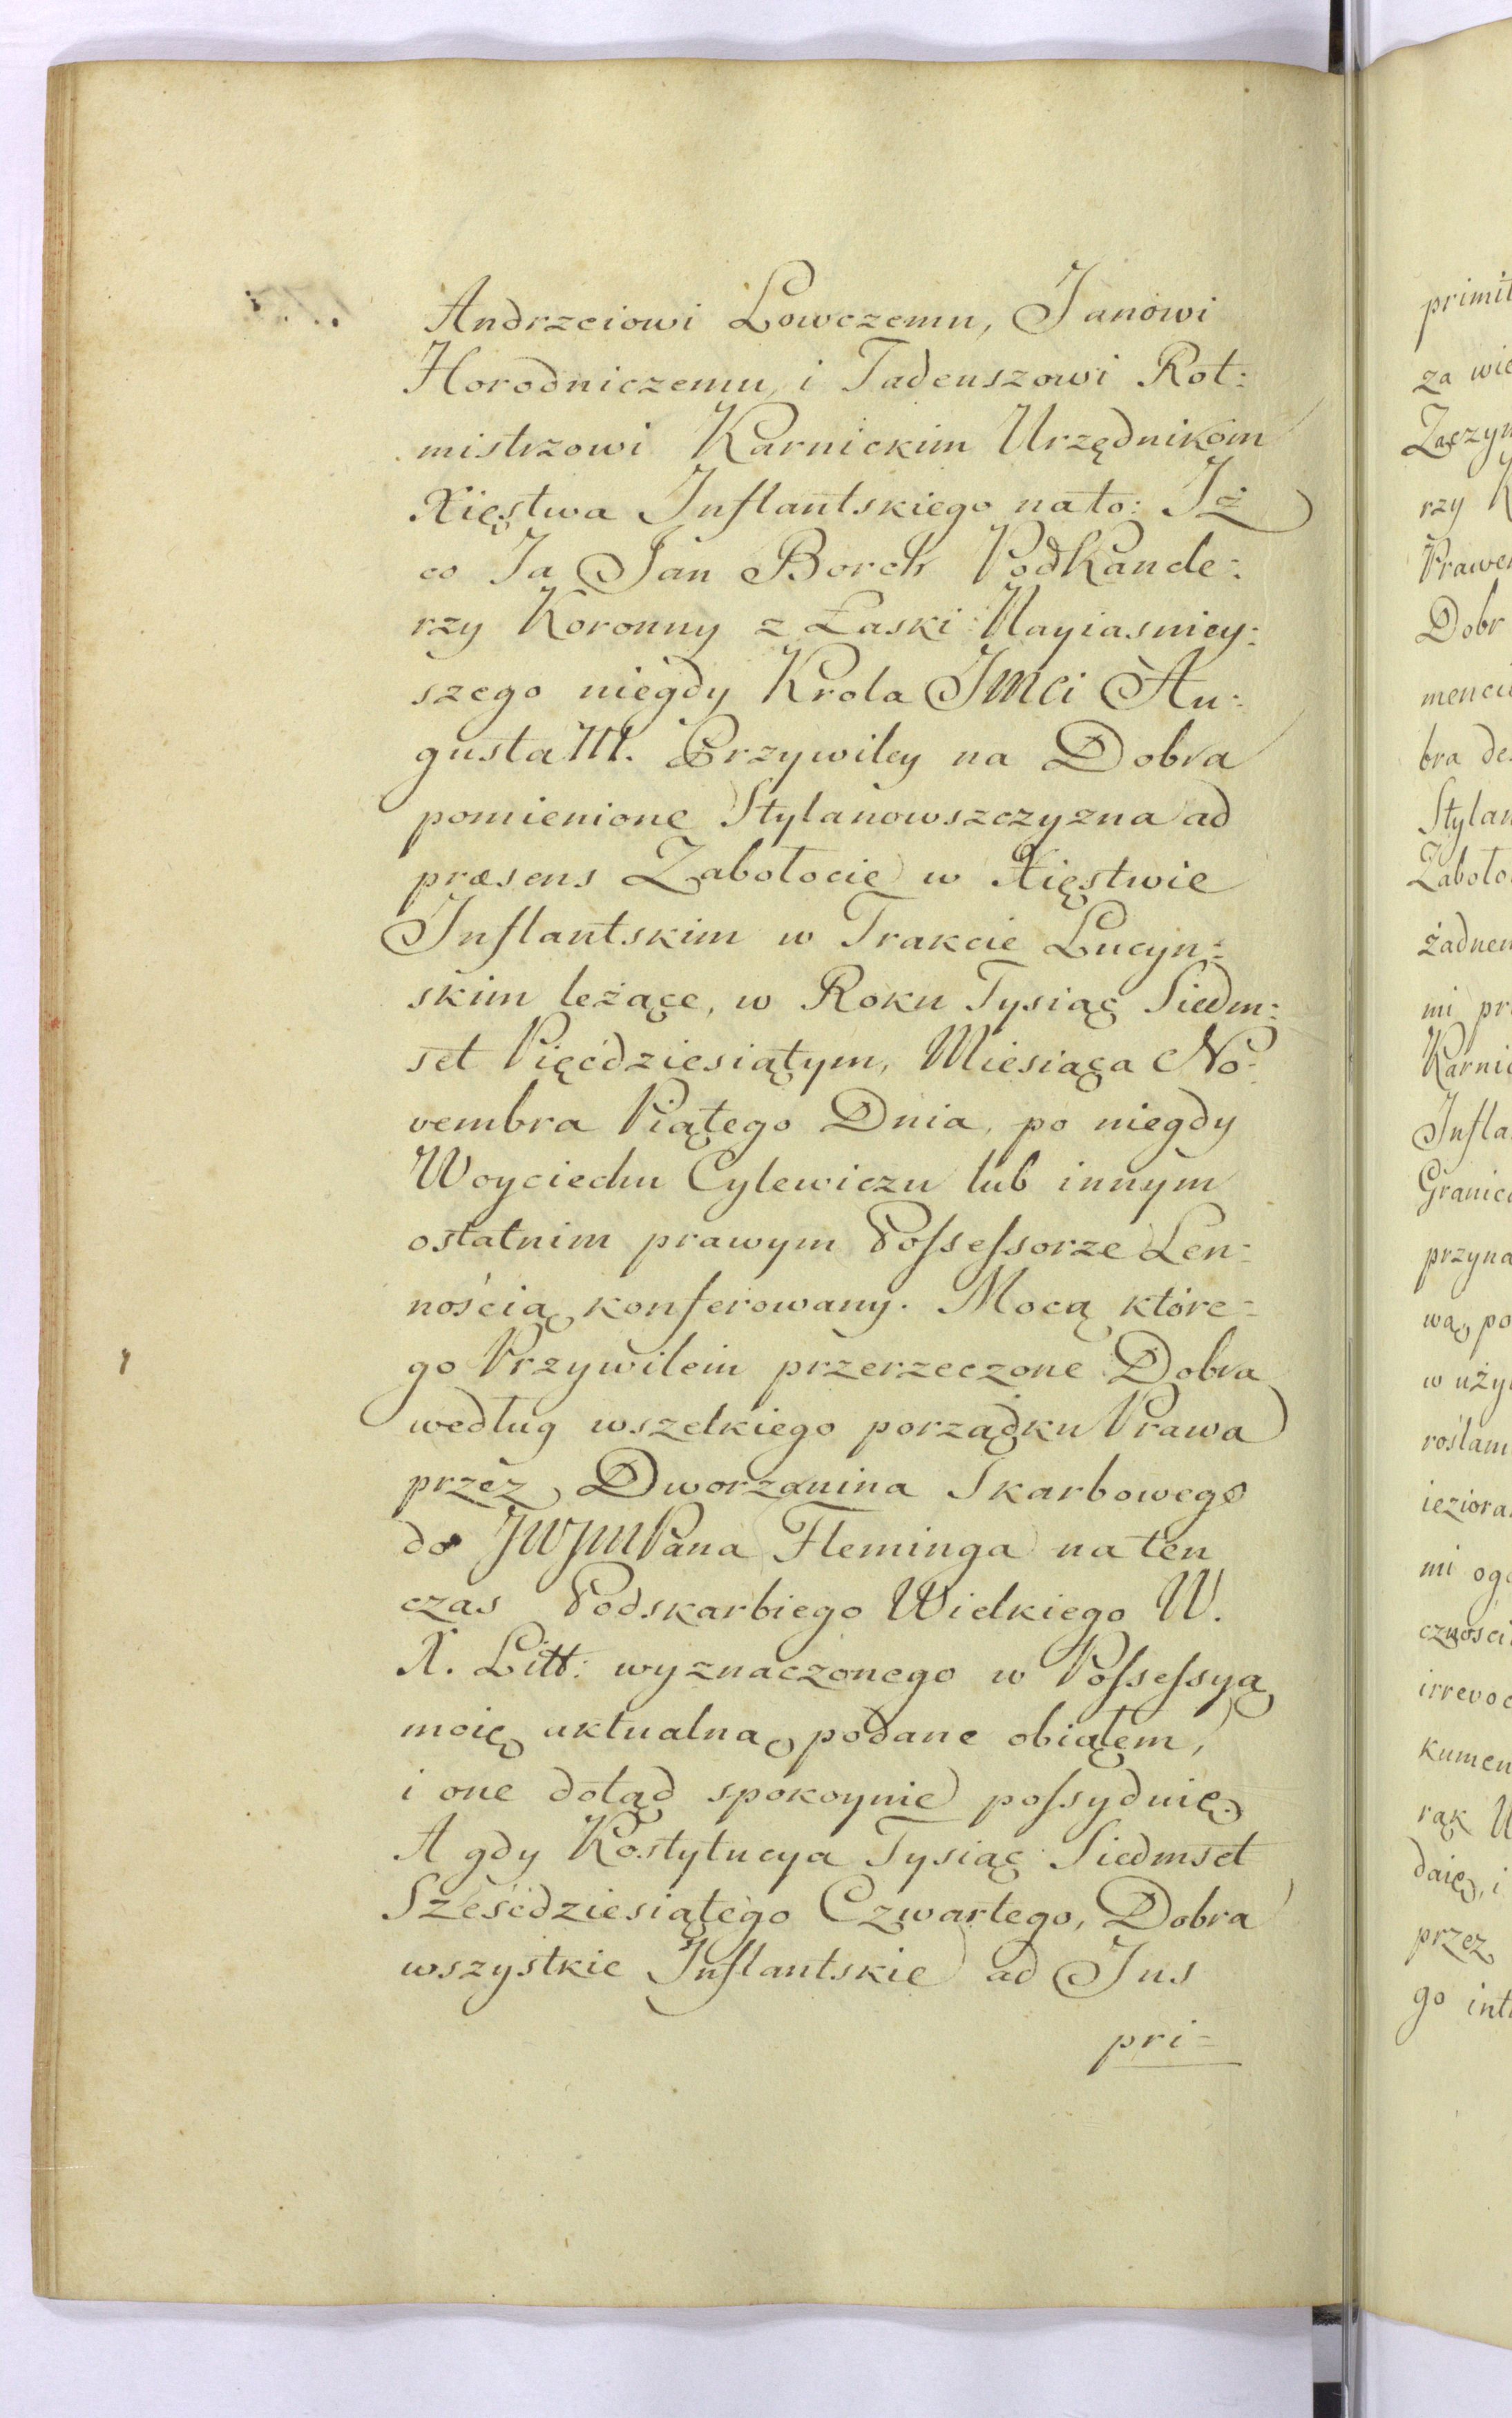 Andrzeiowi Lowczemu, Janowi
Horodniczemu, i Tadeuszowi Rot:
mistrzowi Karnickim Urzędnikóm
Xięstwa Inflantskiego na to: Iż
co Ja Jan Borch PodKancle:
rzy Koronny z Łaski Nayiasniey:
szego niegdy Krola JMci Au:
gusta III. Przywiley na Dobra
pomienione Stylanowszczyzna ad
præsens Zabołocie w Xięstwie
Inflantskim w Trakcie Lucyn:
skim leżące, w Roku Tysiąc Siedm:
set Pięćdziesiątym, Miesiąca No:
vembra Piątego Dnia, po niegdy
Woyciechu Cylewiczu lub innym
ostatnim prawym Possessorze Len:
nością konferowany. Mocą które:
go Przywileiu przerzeczone Dobra
według wszelkiego porządku Prawa
przez Dworzanina Skarbowego
do JWJMPana Fleminga na ten
czas Podskarbiego Wielkiego W.
X. Litt: wyznaczonego w Possessyą
moię aktualną podane obiąłem,
i one dotąd spokoynie possyduię.
A gdy Kostytucya Tysiąc Siedmset
Sześćdziesiątego Czwartego, Dobra
wszystkie Inflantskie ad Jus
pri=
primit
za wie
Zaczym
rzy K
Prawem
Dobr
mencie
bra de
Stylan
Zaboło
żadnem
mi pr
Karnic
Infla
Granica
przyna
wą, po
w uży
roślam
ieziora
mi ogó
czności
irrevoc
kumen
rąk U
daię, i
przez
go int